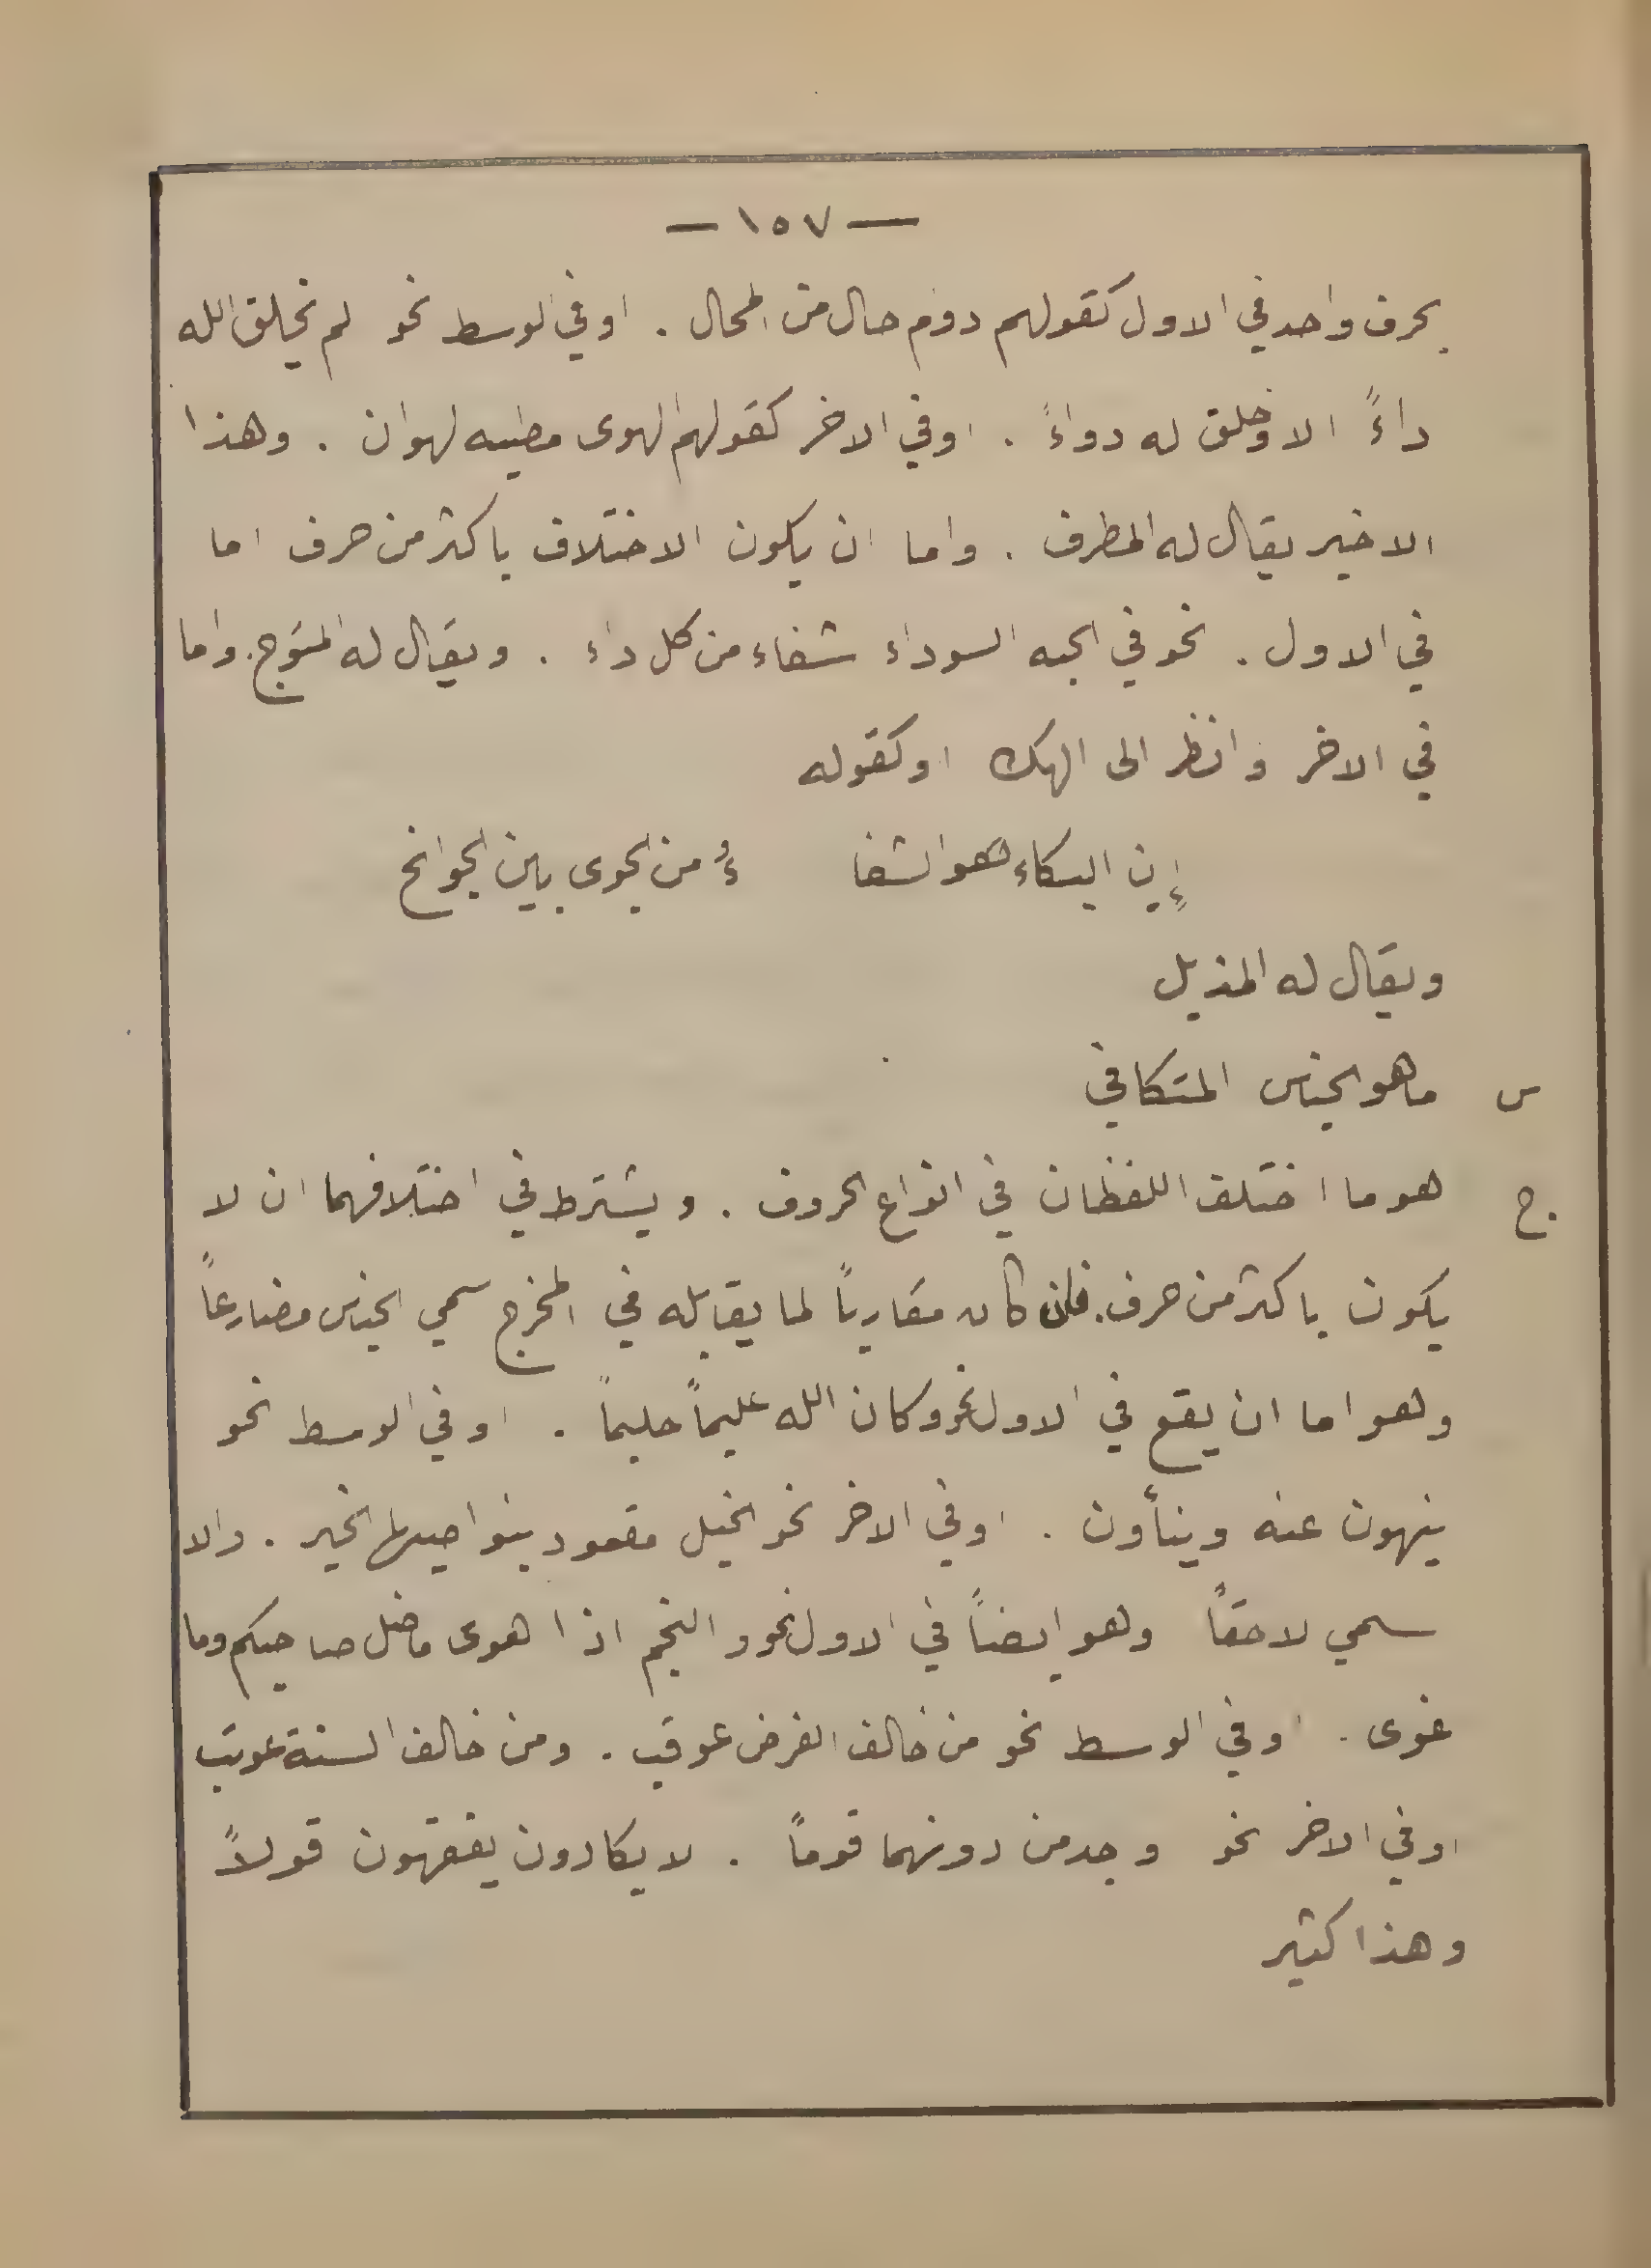 — ١٥٧ —
بحرف واحد في الاول كقولهم دوام حال من المحال . اوفي الوسط نحو لم يخلق الله
داءً الا وخلق له دواءً . اوفي الاخر كقولهم الهوى مطيه لهوان . وهذا
الاخير يقال له المطرف . واما ان يكون الاختلاف باكثر من حرف اما
في الاول . نحو في الحبه السوداء شفاء من كل داء . ويقال له المتوج . واما
في الاخر وانظر الى الهك اوكقوله
إن البكاء هو الشفا ءُ من الجوى بين الجوانح
ويقال له المذيل
س ما هو الجناس المتكافي
ج . هو ما اختلف اللفظان في انواع الحروف . ويشترط في اختلافهما ان لا
يكون باكثر من حرف . فان كان مقارباً لما يقابله في المخرج سمي الجناس مضارعاً
وهو اما ان يقع في الاول نحو وكان الله عليماً حليماً . اوفي الوسط نحو
ينهون عنه وينأون . اوفي الاخر نحو الخيل مقعود بنواصيها الخير . والا
سمي لاحقاً وهو ايضاً في الاول نحو والنجم اذا هوى ما ضل صاحبكم وما
غوى . اوفي الوسط نحو من خالف الفرض عوقب . ومن خالف السنة عوتب
اوفي الاخر نحو وجد من دونهما قوماً . لا يكادون يفقهون قولاً
وهذا كثير